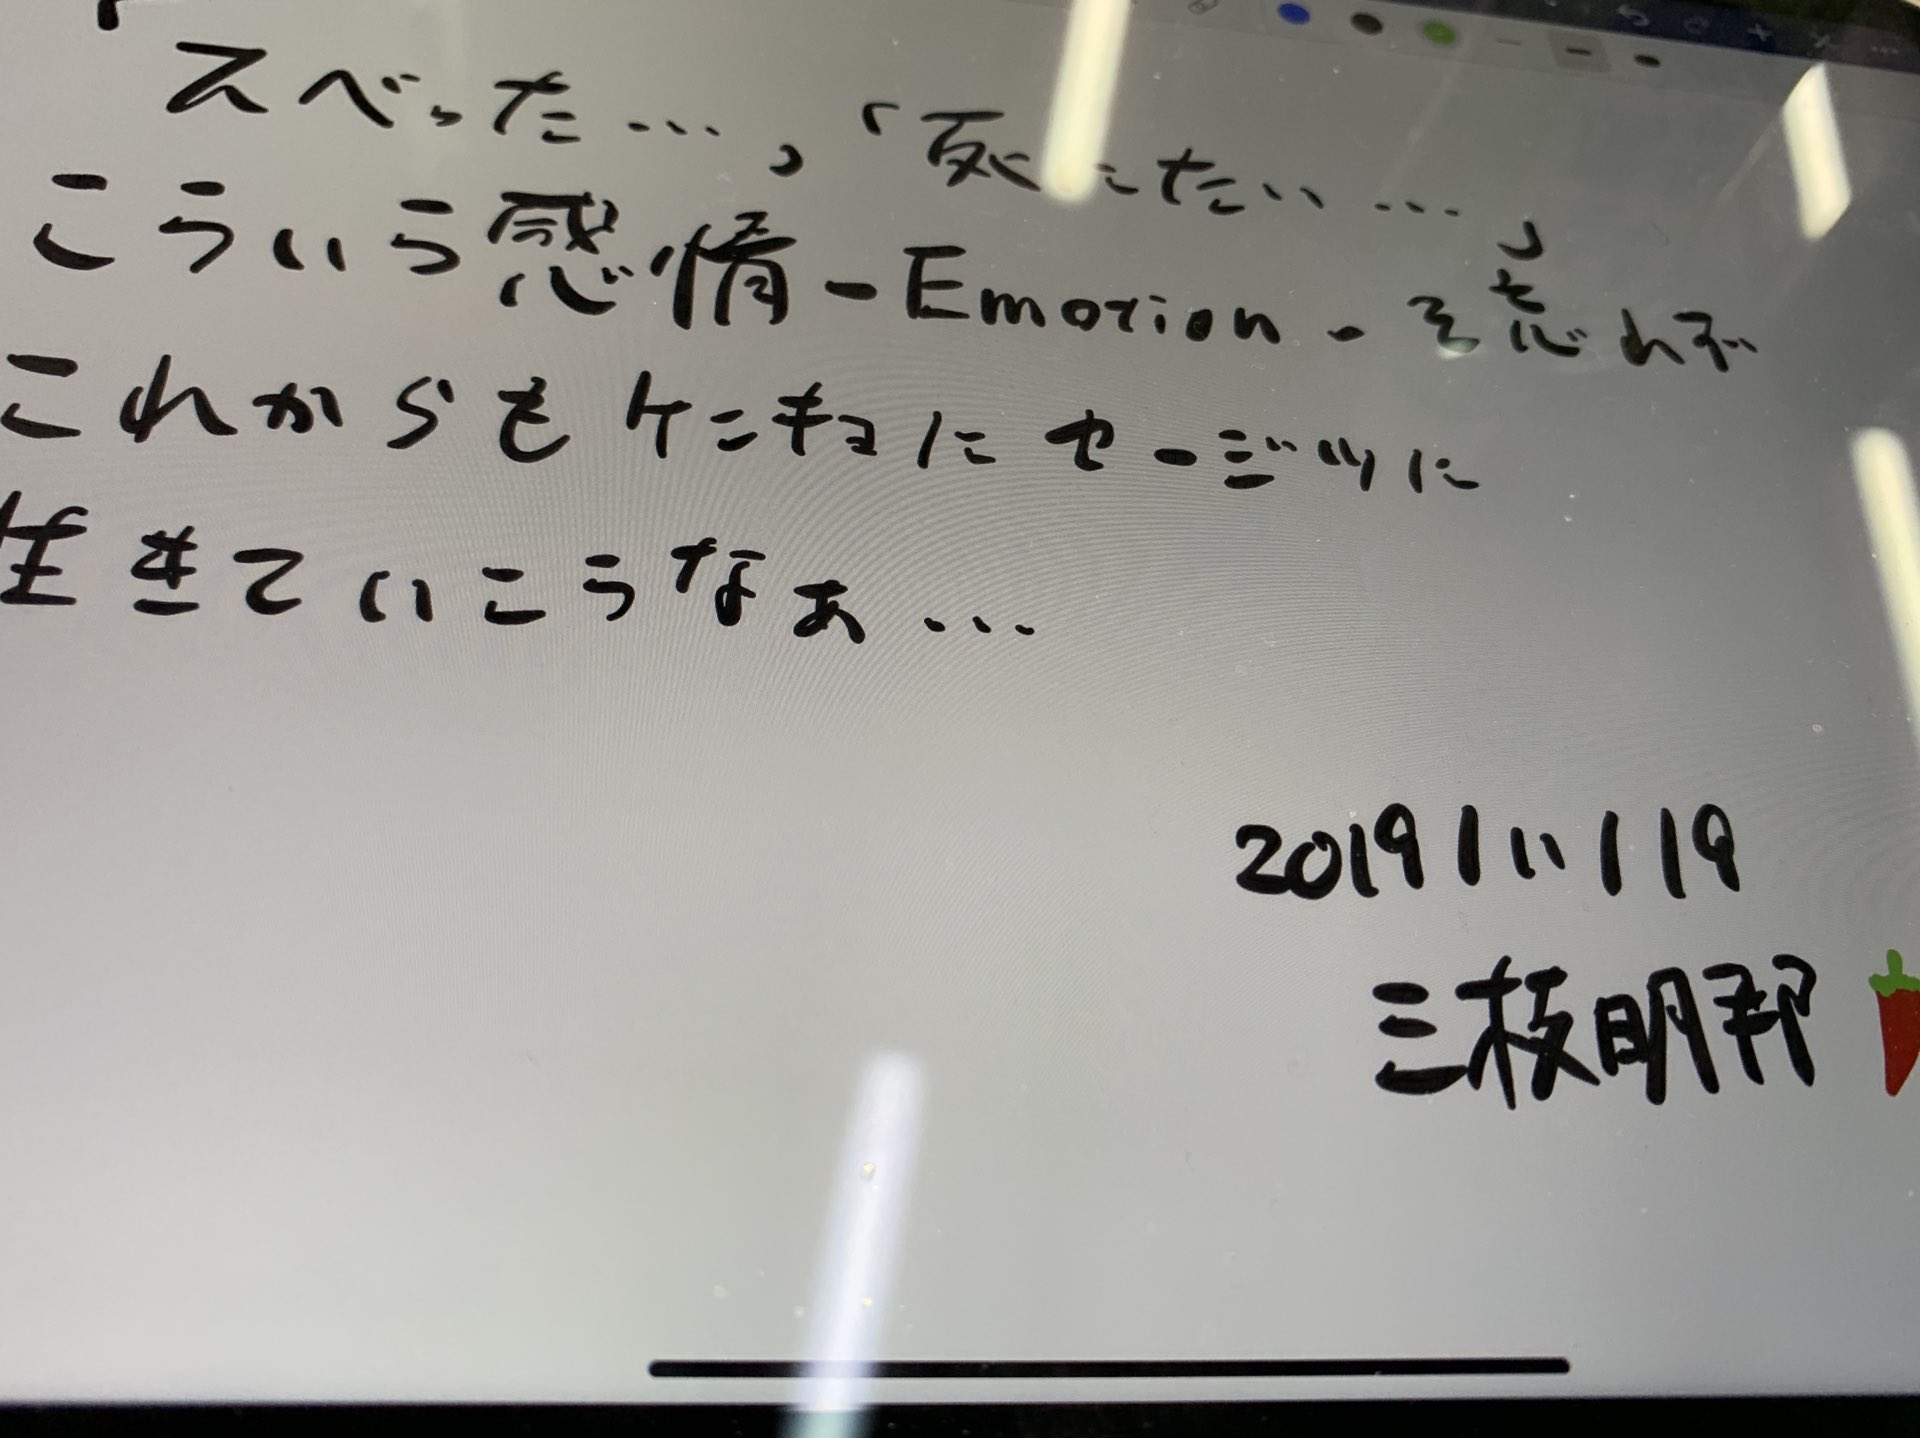 「スベった…」「死にたい…」
こういう感情-Emotion-を忘れず
これからもケンキョにセージツに
生きていこうなぁ…
2019/11/19
三枝明那